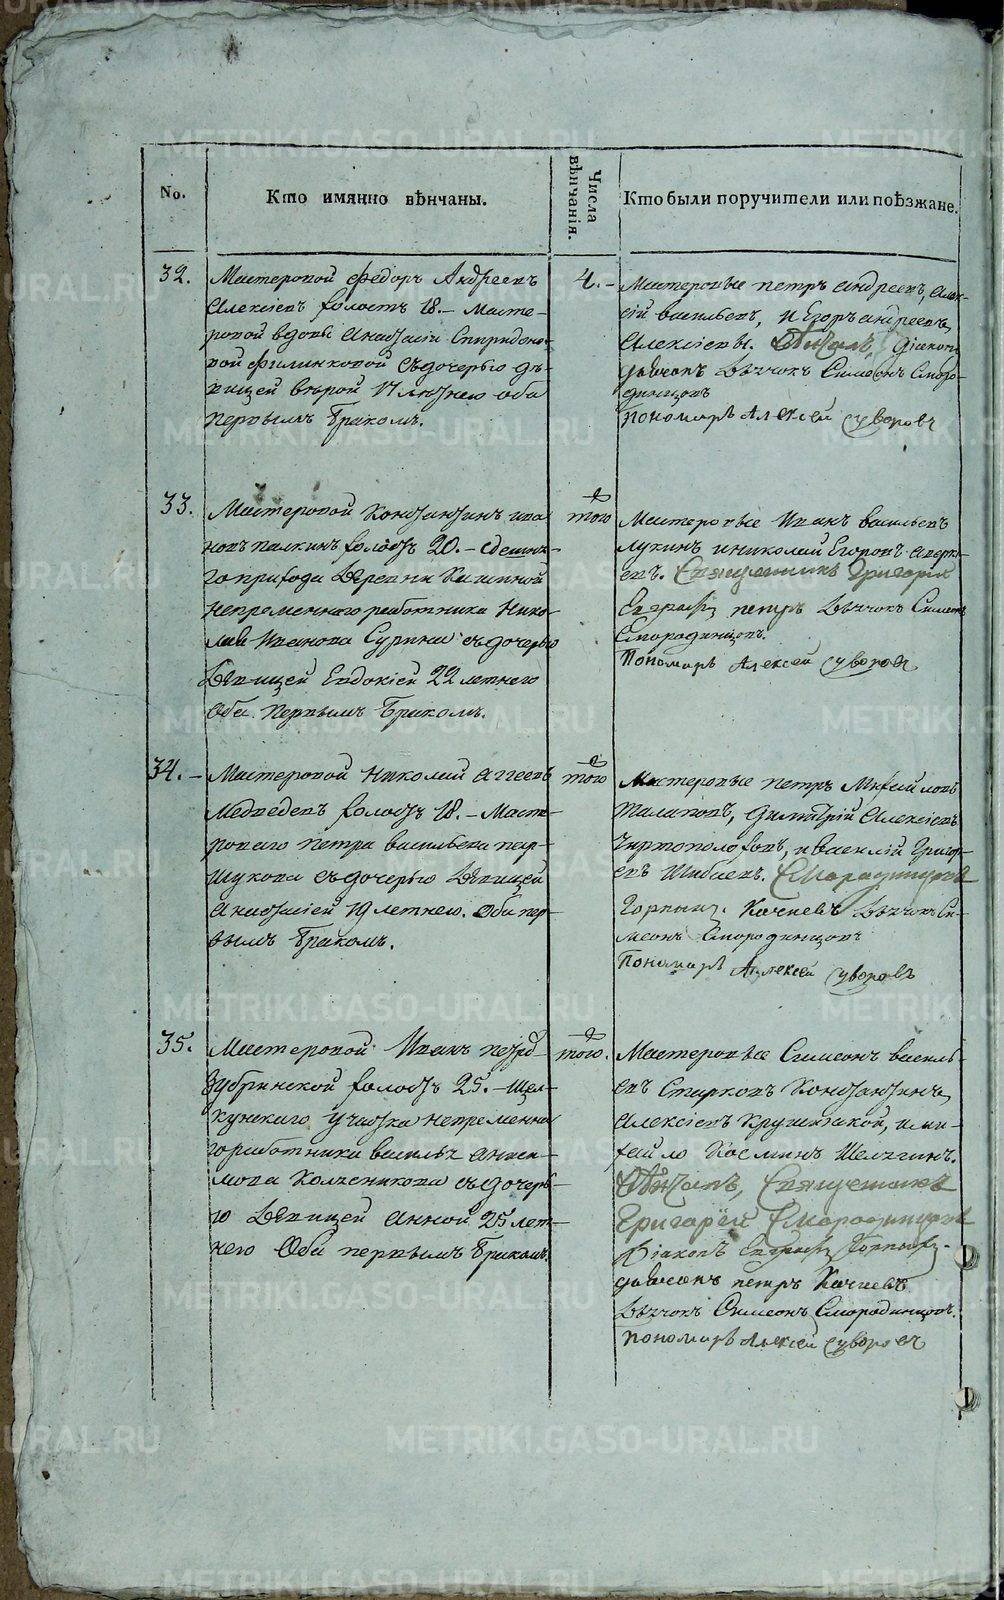 No.
Кто имянно вѣнчаны.
Числа вѣнчанія.
Кто были поручители или поѣзжане.
32.
Мастеровой Федоръ Андреевъ
Алексіевъ холостъ 18. – Масте-
ровой вдовы Анастасіи Спиридоно-
вой Филинковой съ дочерью дѣ-
вицей вѣрой 17 лѣтнею оба
первымъ бракомъ.
4. –
Мастеровые петръ андреевъ, Алек-
сій васильевъ, и Егоръ андреевъ,
Алексіевы. діаконъ
дьячокъ Семеонъ Сморо-
динцовъ
пономарь Алексей Суворовъ
33.
Мастеровой Константинъ ива
новъ палкинъ холостъ 20. – здешня-
го прихода деревни Кашиной
непременнаго работника Нико-
лая Иванова Сурина съ дочерью
дѣвицей Евдокіей 22 летнего
Оба первымъ бракомъ.
того
Мастеровые Иванъ васильевъ
лукинъ и николай Егоровъ аверкі-
евъ. Священникъ Григорій
петръ Симеонъ
Смородинцовъ.
Пономарь Алексей Суворовъ
34. –
Мастеровой Николай Аггеевъ
Медведевъ холостъ 18. – Масте-
роваго петра васильева пар-
шукова съ дочерью дѣвицей
Анастасіей 19 летнею. Оба пер-
вымъ бракомъ.
того
Мастеровые петръ Михайловъ
Талановъ, Димитрій Алексіевъ
Чертополоховъ, и василій Григорь-
евъ Шибаевъ. Смородинцовъ
Кочневъ Си-
меонъ Смородинцовъ
Пономарь Алексей Суворовъ
35.
Мастеровой Иванъ петровъ
Зубринской холостъ 25. – Щел-
кунскаго участка непременна
го работника василья Аниси-
мова Колченикова съ дочерь-
ю дѣвицей Анной 25 лет-
него Оба первымъ бракомъ.
того.
Мастеровые Симеонъ василь-
евъ Старковъ Константинъ,
Алексіевъ Крушинской, и ми-
хайло Космин Шелегинъ.
Священникъ
Григорій Смородинцовъ
Діаконъ
дьячокъ петръ Кочневъ
Симеонъ Смородинцовъ.
пономарь Алексей Суворовъ
METRIKI.GASO-URAL.RU